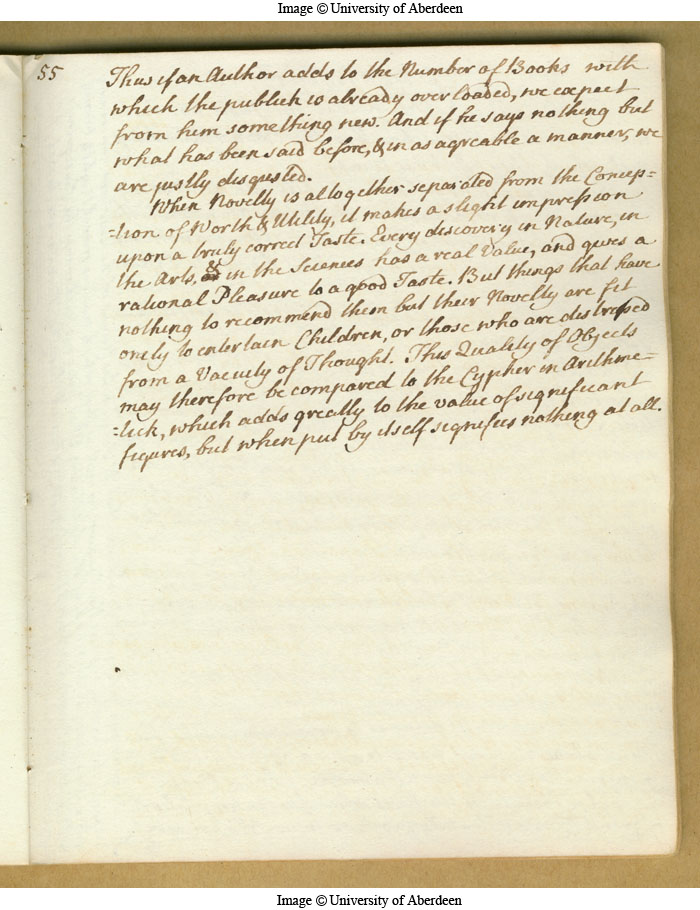 Image © University of Aberdeen
55
Thus if an Author adds to the Number of Books with
which the publick is already over loaded, we expect
from him something new. And if he says nothing but
what has been said before, & in as agreable a manner, we
are justly disgusted.
When Novelty is altogether separated from the Concep=
=tion of Worth & Utility, it makes a slight impression
upon a truly correct Taste. Every discovery in Nature, in
the Arts, or & in the Sciences has a real Value, and gives a
rational Pleasure to a good Taste. But things that have
nothing to recommend them but their Novelty are fit
onely to entertain Children, or those who are distressed
from a Vacuity of Thought. This Quality of Objects
may therefore be compared to the Cypher in Arithme=
=tick, which adds greatly to the value of significant
figures, but when put by itself signifies nothing at all.
Image © University of Aberdeen